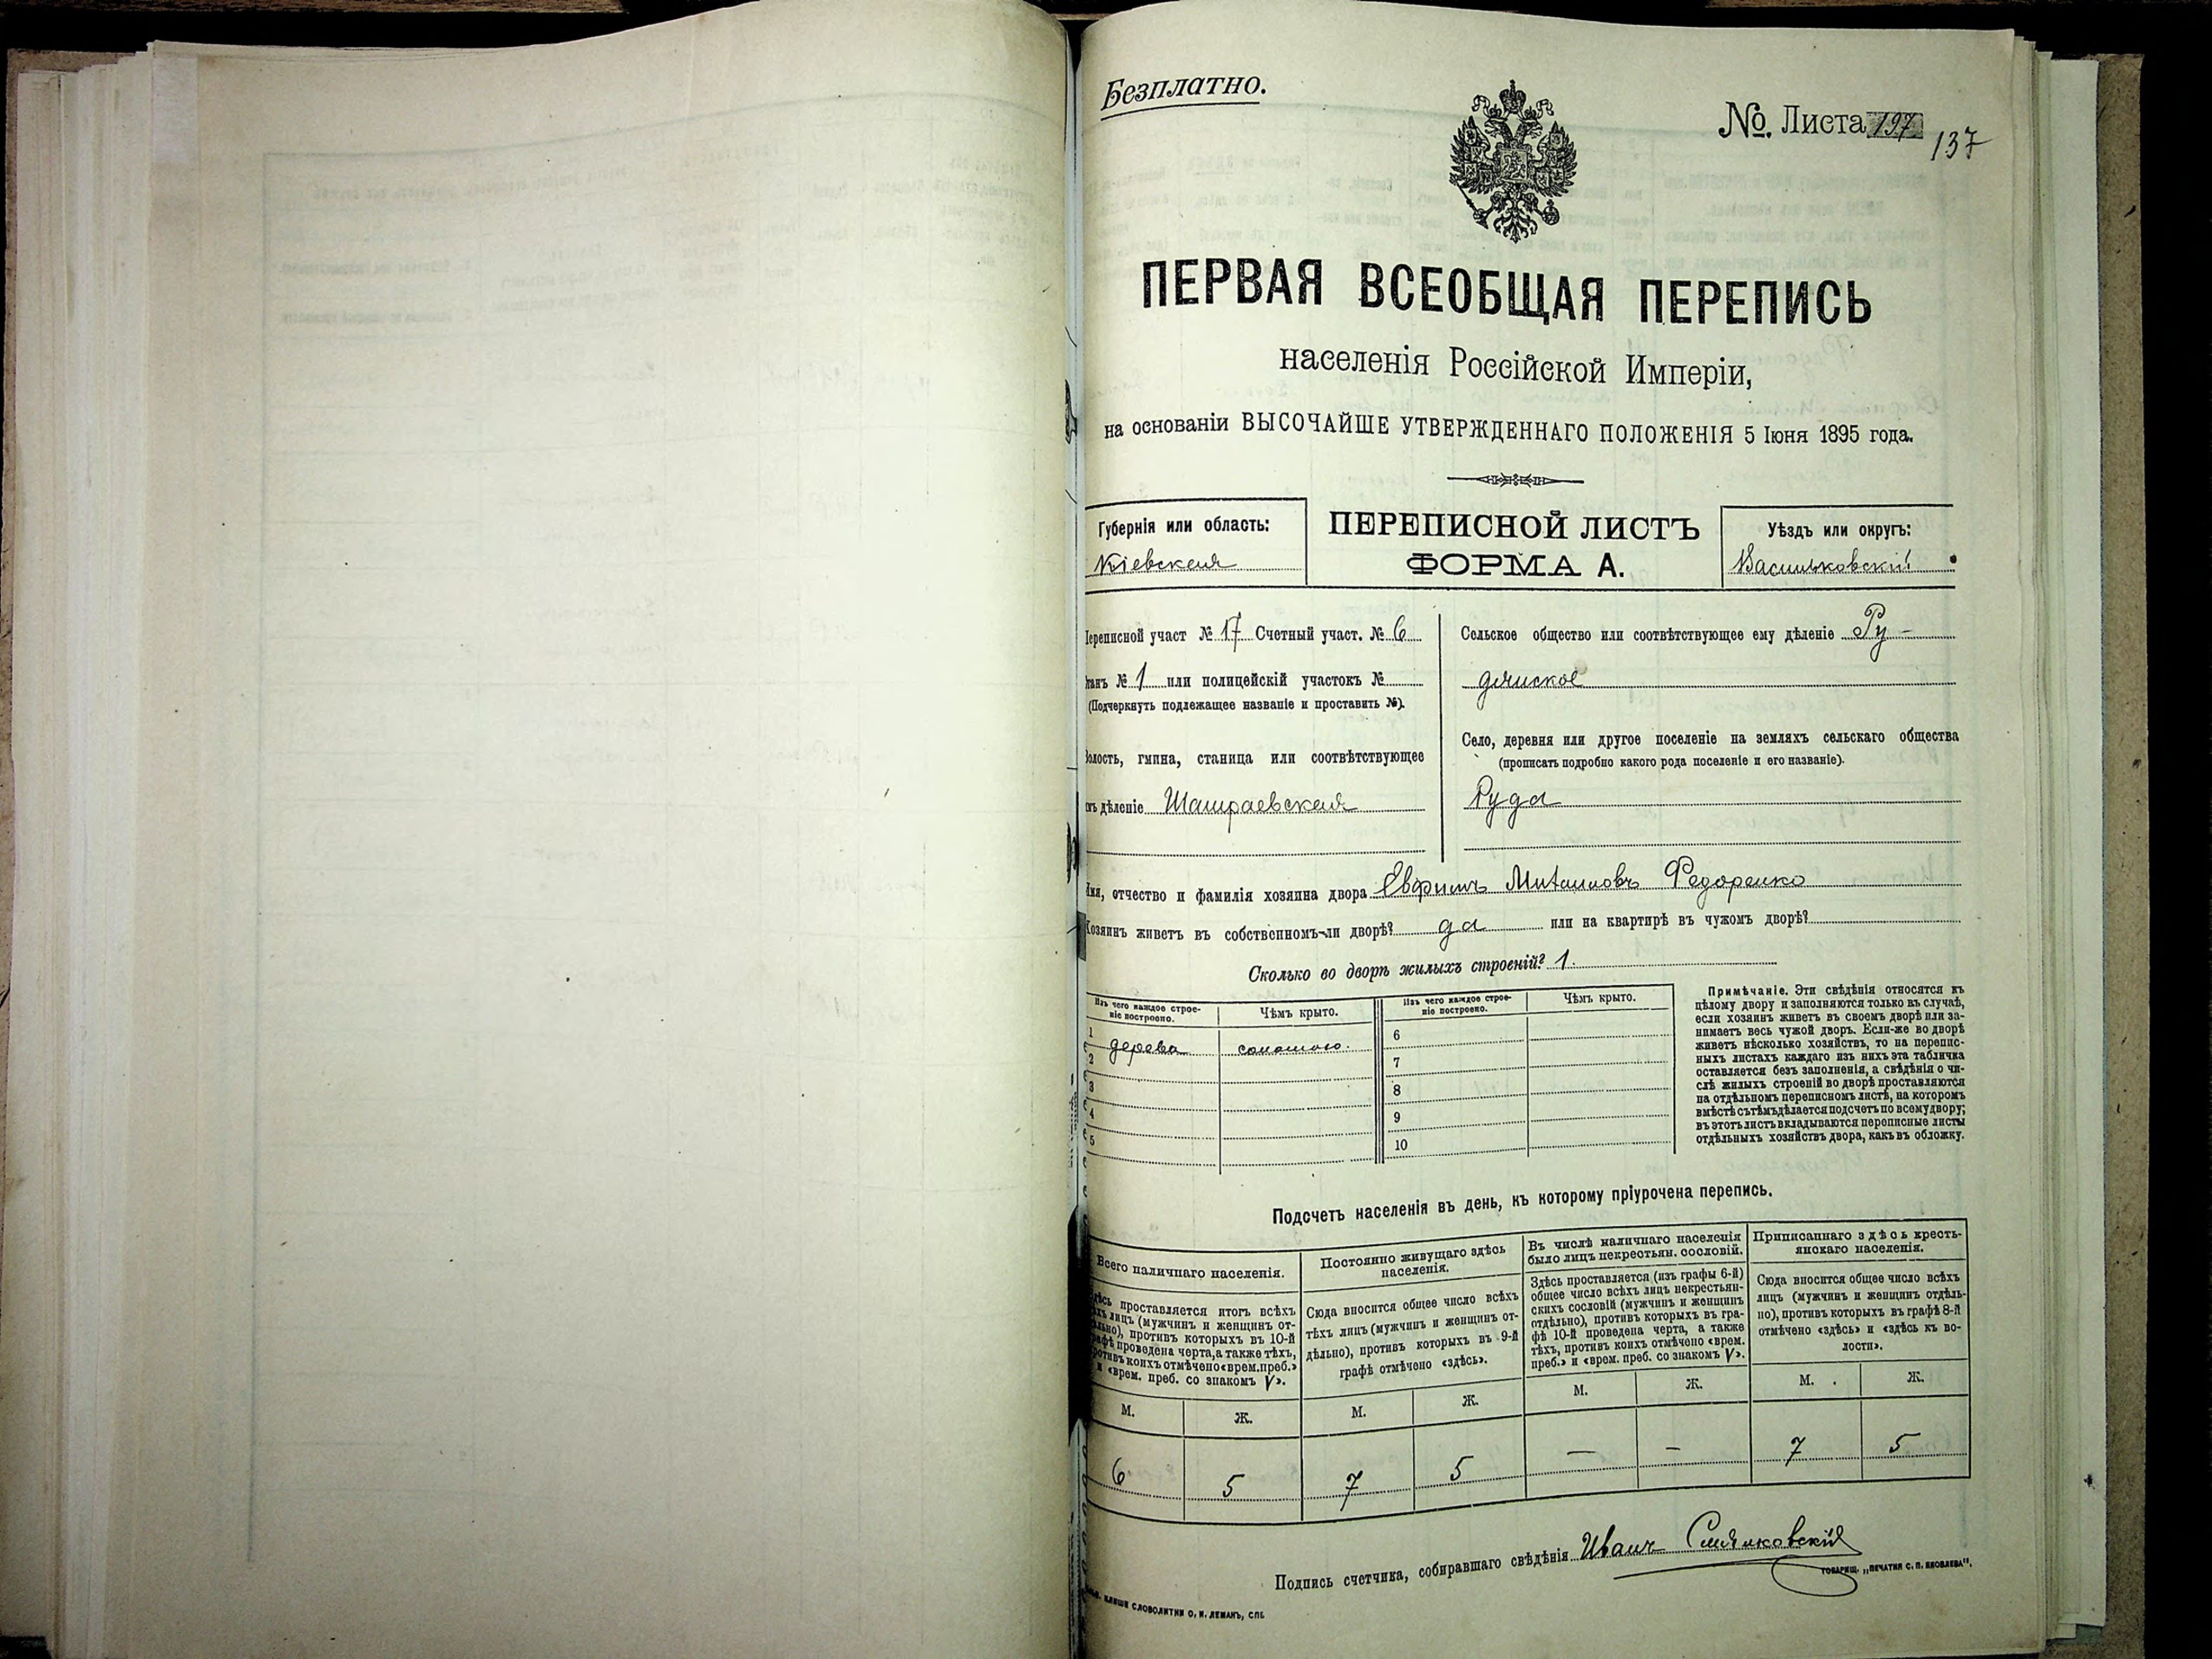 Безплатно.
№. Листа 197
137
ПЕРВАЯ ВСЕОБЩАЯ ПЕРЕПИСЬ
населенія Россійской Имперіи,
на основаніи ВЫСОЧАЙШЕ УТВЕРЖДЕННАГО ПОЛОЖЕНІЯ 5 Іюня 1895 года.
Губернія или область:
Кіевская
ПЕРЕПИСНОЙ ЛИСТЪ
ФОРМА А.
Уѣздъ или округъ:
Васильковскій
Переписной участ № 17 Счетный участ. № 6
Станъ № 1 или полицейскій участокъ №
(Подчеркнуть подлежащее названіе и проставить №).
Волость, гмина, станица или соотвѣтствующее
имъ дѣленіе Шамраевская
Сельское общество или соотвѣтствующее ему дѣленіе Ру-
дянское
Село, деревня или другое поселеніе на земляхъ сельскаго общества
(прописать подробно какого рода поселеніе и его названіе).
Руда
Имя, отчество и фамилія хозяина двора Евфимъ Михаиловъ Федоренко
Хозяинъ живетъ въ собственномъ-ли дворѣ? да или на квартирѣ въ чужомъ дворѣ?
Сколько во дворѣ жилыхъ строеній? 1.
Изъ чего каждое строе-
ніе построено.
Чѣмъ крыто.
1 дерева соломою.
2
3
4
5
Изъ чего каждое строе-
ніе построено.
Чѣмъ крыто.
6
7
8
9
10
Примѣчаніе. Эти свѣдѣнія относятся къ
цѣлому двору и заполняются только въ случаѣ,
если хозяинъ живетъ въ своемъ дворѣ или за-
нимаетъ весь чужой дворъ. Если-же во дворѣ
живетъ нѣсколько хозяйствъ, то на перепис-
ныхъ листахъ каждаго изъ нихъ эта табличка
оставляется безъ заполненія, а свѣдѣнія о чи-
слѣ жилыхъ строеній во дворѣ проставляются
на отдѣльномъ переписномъ листѣ, на которомъ
вмѣстѣ съ тѣмъ дѣлается подсчетъ по всему двору;
въ этотъ листъ вкладываются переписные листы
отдѣльныхъ хозяйствъ двора, какъ въ обложку.
Подсчетъ населенія въ день, къ которому пріурочена перепись.
Всего наличнаго населенія.
Здѣсь проставляется итогъ всѣхъ
тѣхъ лицъ (мужчинъ и женщинъ от-
дѣльно), противъ которыхъ въ 10-й
графѣ проведена черта, а также тѣхъ,
противъ коихъ отмѣчено «врем. преб.»
и «врем. преб. со знакомъ V».
М. Ж.
6 5
Постоянно живущаго здѣсь
населенія.
Сюда вносится общее число всѣхъ
тѣхъ лицъ (мужчинъ и женщинъ от-
дѣльно), противъ которыхъ въ 9-й
графѣ отмѣчено «здѣсь».
М. Ж.
7 5
Въ числѣ наличнаго населенія
было лицъ некрестьян. сословій.
Здѣсь проставляется (изъ графы 6-й)
общее число всѣхъ лицъ некрестьян-
скихъ сословій (мужчинъ и женщинъ
отдѣльно), противъ которыхъ въ гра-
фѣ 10-й проведена черта, а также
тѣхъ, противъ коихъ отмѣчено «врем.
преб.» и «врем. преб. со знакомъ V».
М. Ж.
— —
Приписаннаго здѣсь кресть-
янскаго населенія.
Сюда вносится общее число всѣхъ
лицъ (мужчинъ и женщинъ отдѣль-
но), противъ которыхъ въ графѣ 8-й
отмѣчено «здѣсь» и «здѣсь къ во-
лости».
М. Ж.
7 5
Подпись счетчика, собиравшаго свѣдѣнія Иванъ
СЛОВОЛИТНИ О. И. ЛЕМАНЪ, СПБ
ТОВАРИЩ. „ПЕЧАТНЯ С. П. ЯКОВЛЕВА".